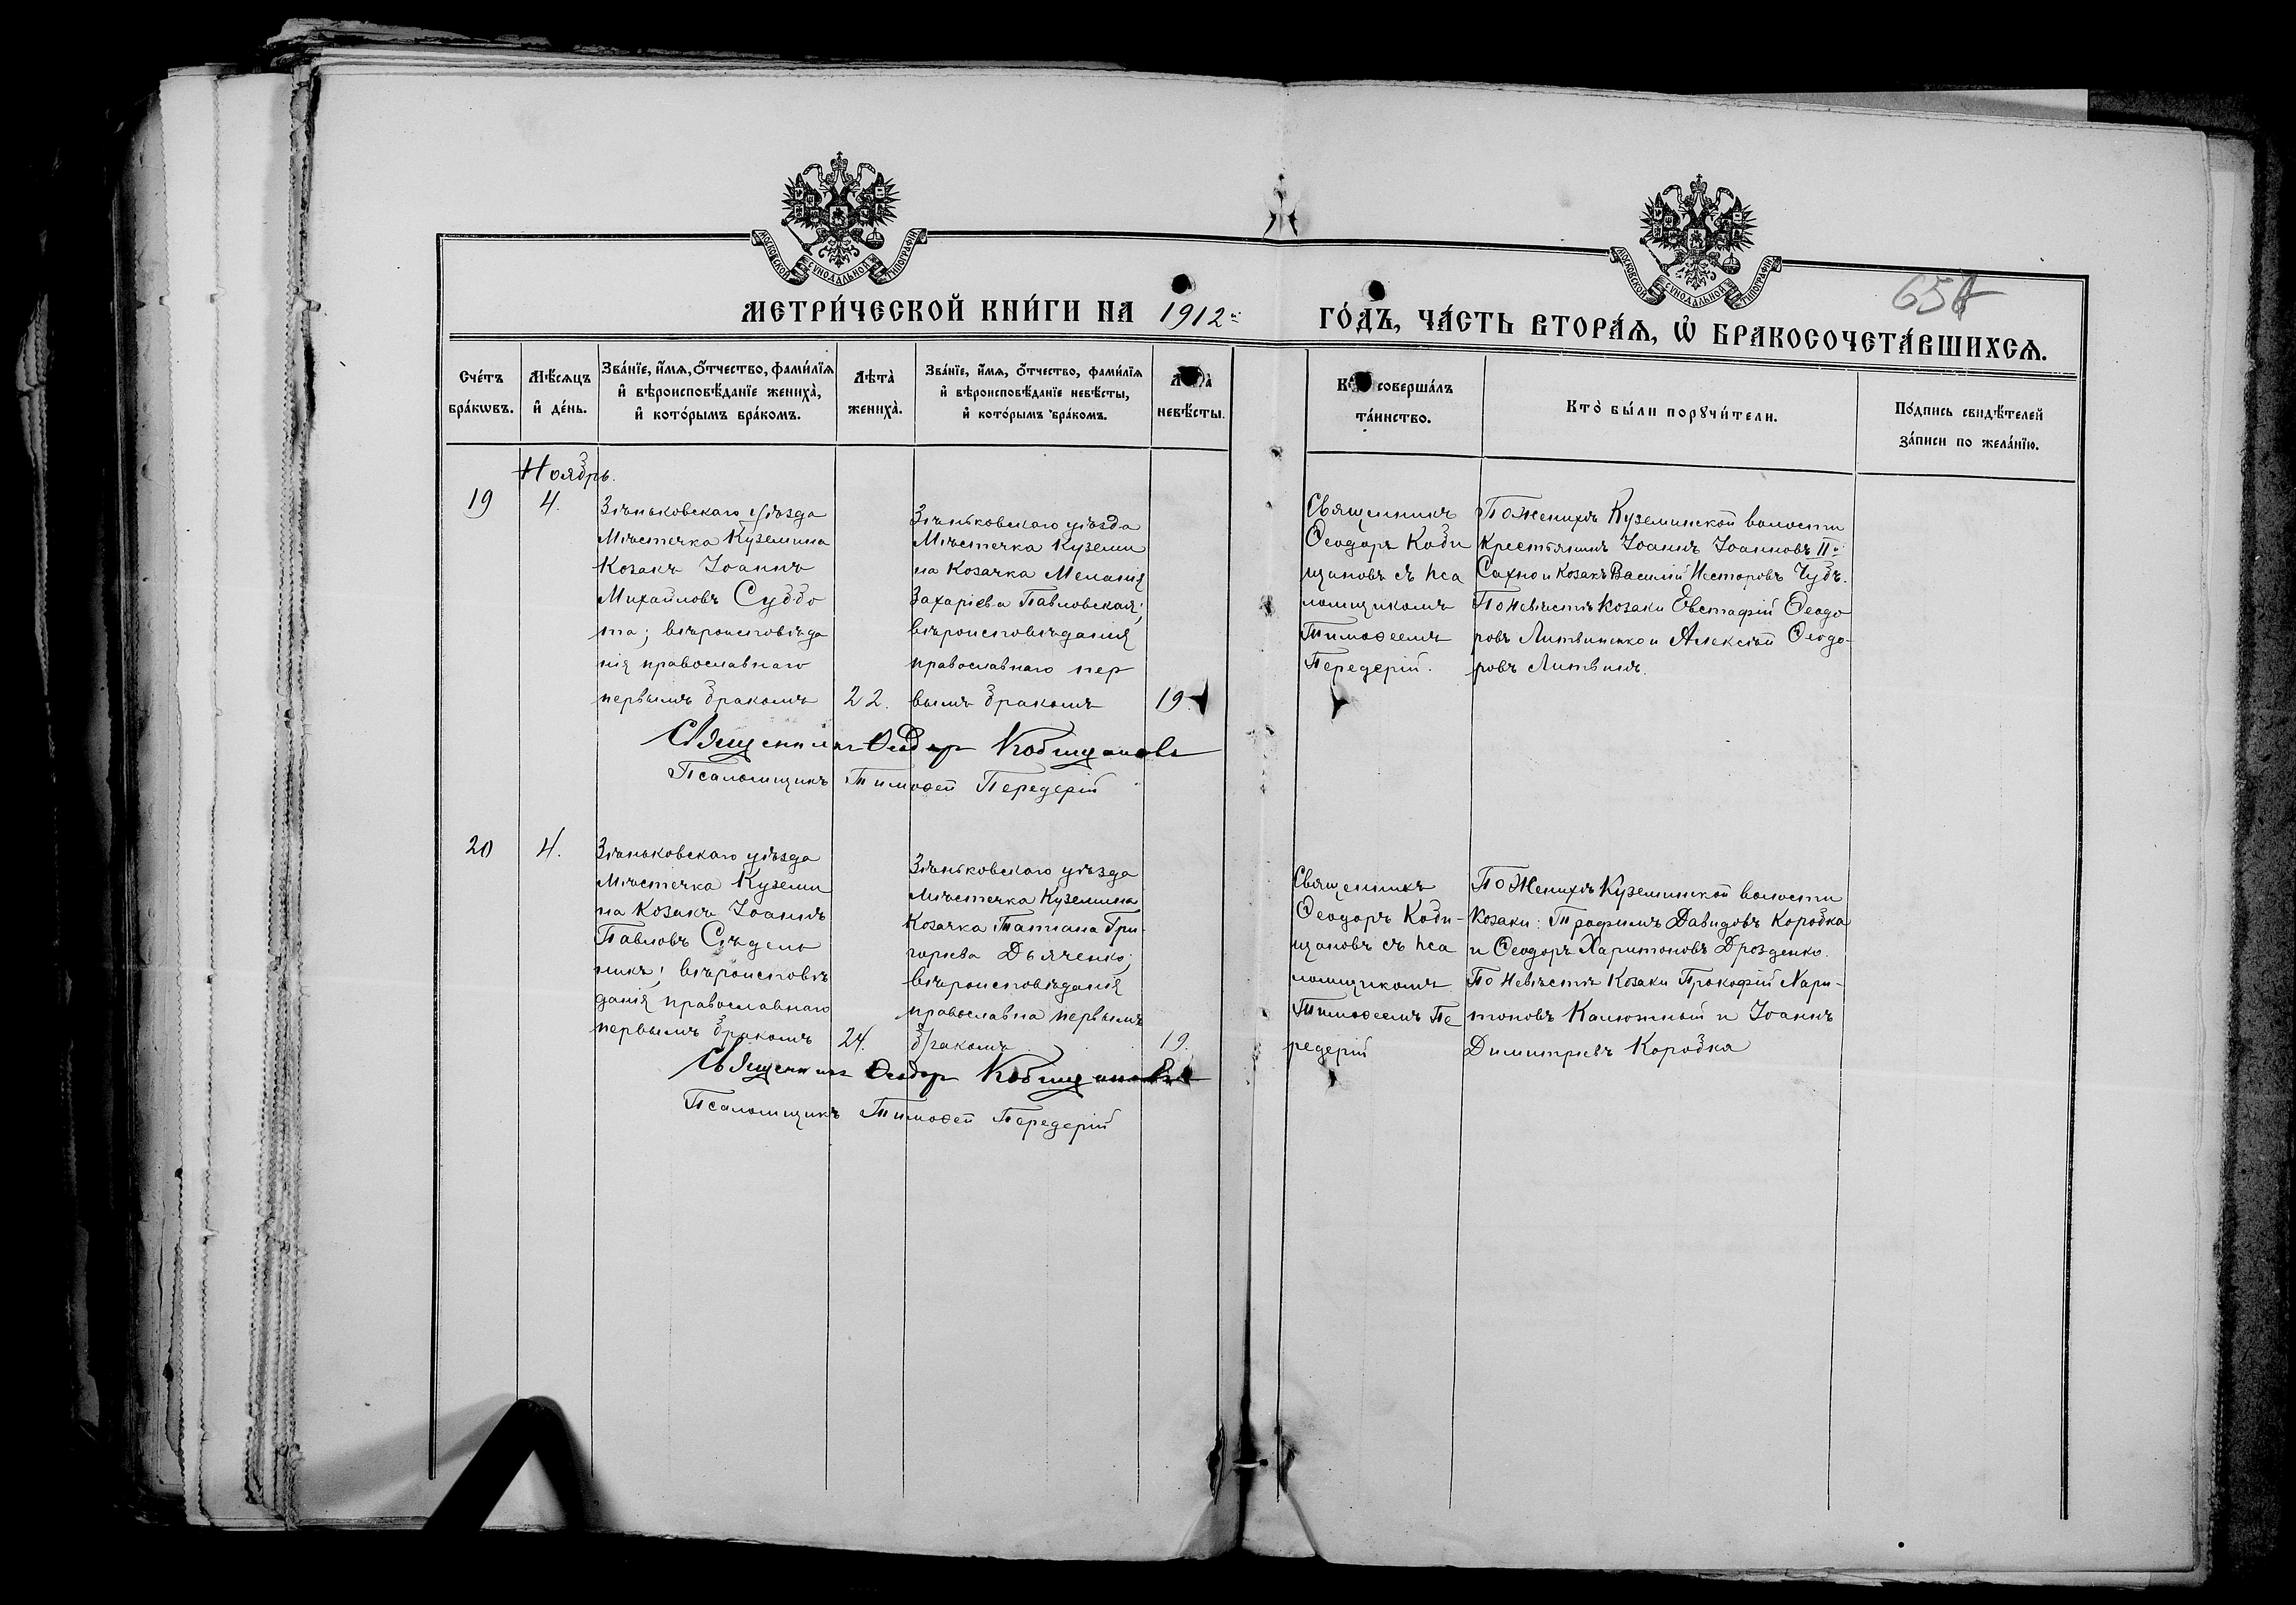 МОСКОВСКОЙ СѴНОДАЛЬНОЙ ТИПОГРАФІИ
МОСКОВСКОЙ СѴНОДАЛЬНОЙ ТИПОГРАФІИ
МЕТРИ́ЧЕСКОЙ КНИ́ГИ НА 1912й
ГО́ДЪ, ЧА́СТЬ ВТОРА́Ѧ, Ѡ БРАКОСОЧЕТА́ВШИХСѦ.
Сче́тъ бра́кѡвъ.
Мѣ́сѧцъ и҆ де́нь.
Зва́нїе, и҆́мѧ, ѻ҆́тчество, фами́лїѧ
и҆ вѣроисповѣ́данїе жениха̀,
и҆ кото́рымъ бра́комъ.
Лѣта̀ жениха̀.
Зва́нїе, и҆́мѧ, ѻ҆́тчество, фами́лїѧ
и҆ вѣроисповѣ́данїе невѣ́сты,
и҆ кото́рымъ бра́комъ.
невѣ́сты.
совершáлъ
та́инство.
Кто̀ бы́ли порꙋчи́тели.
По́дпись свидѣ́телей
за́писи по жела́нїю.
Ноябрь.
19
4.
Зѣньковскаго уѣзда
Мѣстечка Куземина
Козакъ Іоаннъ
Михайловъ Суббо
та; вѣроисповѣда
нія православнаго
первымъ бракомъ
22.
Зѣньковскаго уѣзда
Мѣстечка Куземи
на Козачка Меланія
Захаріева Павловская;
вѣроисповѣданія
православнаго пер
вымъ бракомъ
19
Священникъ
Ѳеодоръ Коби
щановъ съ пса
ломщикомъ
Тимоѳеемъ
Передерій.
По Женихѣ Куземинской волости
Крестьянинъ Іоаннъ Іоанновъ IIй
Сахно и Козакъ Василій Несторовъ Чубъ.
По Невѣстѣ Козаки Евстафій Ѳеодо
ровъ Литвиненко и Алексѣй Ѳеодо-
ровъ Литвинъ.
Священникъ Ѳеодоръ Кобищановъ
Псаломщикъ Тимоѳей Передерій
20
4.
Зѣньковскаго уѣзда
Мѣстечка Куземи
на Козакъ Іоаннъ
Павловъ Сѣдель
никъ; вѣроисповѣ
данія православнаго
первымъ бракомъ
24.
Зѣньковскаго уѣзда
Мѣстечка Куземина
Козачка Татіана Гри-
горіева Дьяченко;
вѣроисповѣданія
православна первымъ
бракомъ
19.
Священникъ
Ѳеодоръ Коби-
щановъ съ пса
ломщикомъ
Тимоѳеемъ Пе
редерій
По Женихѣ Куземинской волости
Козаки: Трофимъ Давидовъ Коробка
и Ѳеодоръ Харитоновъ Дрозденко.
По Невѣстѣ Козаки Прокофій Хари-
тоновъ Калюжный и Іоаннъ
Димитріевъ Коробка
Священникъ Ѳеодоръ Кобищановъ
Псаломщикъ Тимоѳей Передерій